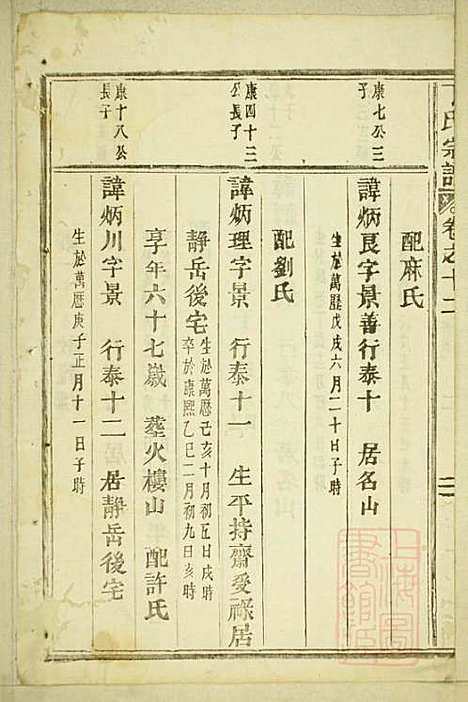 氏宗譜
卷之十二
配麻氏
康七公三子
諱炳良字景善行泰十 居名山
生於萬歷戊戌六月二十日子時
配劉氏
康四十三公長子
諱炳理字景 行泰十一 生平持齋愛祿居
靜岳後宅
生於萬歷己亥十月初五日戌時
卒於康熙乙巳二月初九日亥時
享年六十七歲 葬火樓山 配許氏
康十八公長子
諱炳川字景 行泰十二 居靜岳後宅
生於萬歷庚子正月十一日子時
上海圖書館藏